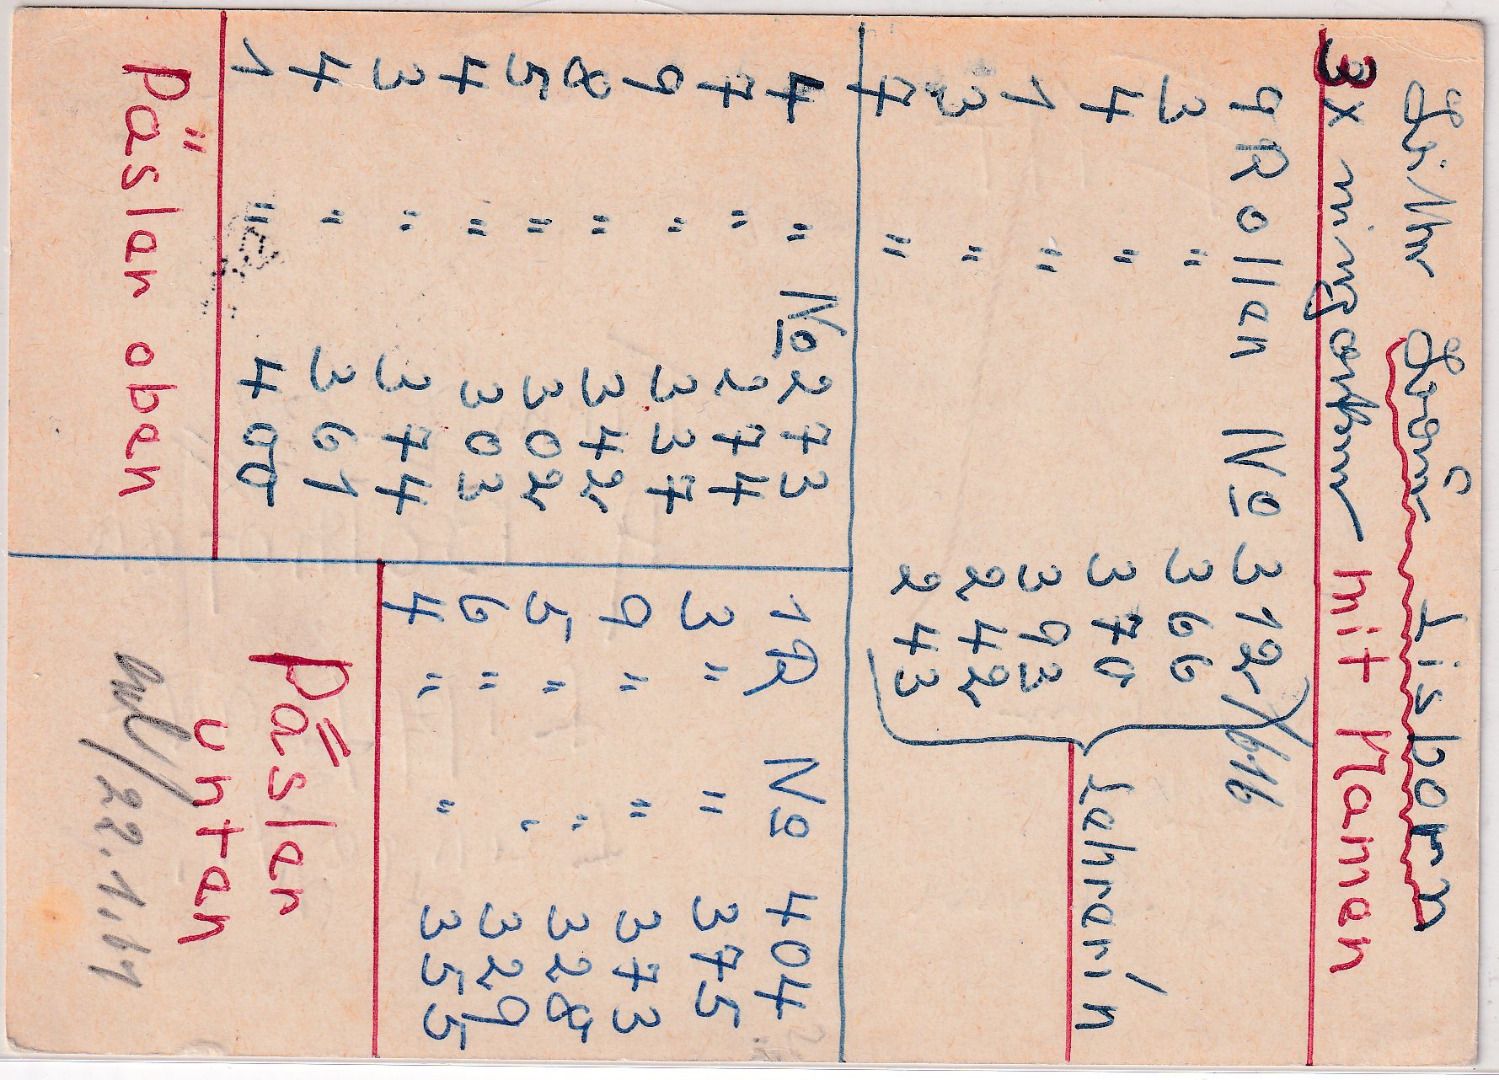 Lisborn
3x eingetroffen mit Namen
9 Rollen No 312 /616
3 " 366
4 " 370
1 " 393
3 " 242
7 " 243
Lehrerin
4 " No 273
7 " 274
9 " 337
8 " 342
5 " 302
4 " 303
3 " 374
4 " 361
1 " 400
Päsler oben
1 R No 404
3 " " 375
9 " " 373
5 " " 328
6 " " 329
4 " " 355
Päsler
unten
22.1.61